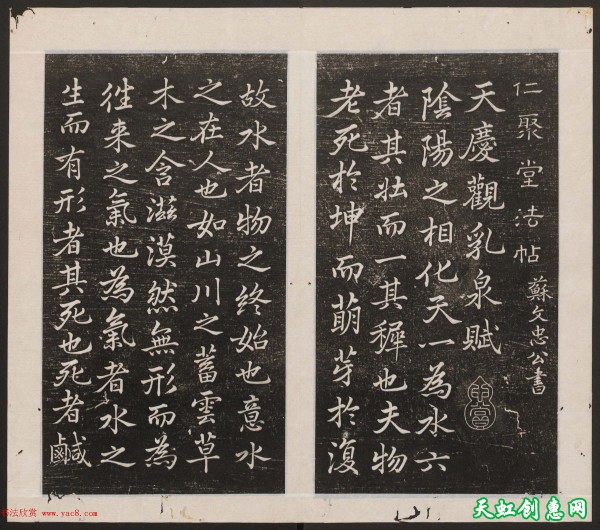 仁聚堂法帖 蘇文忠公書
天慶觀乳泉賦
陰陽之相化天一為水六
者其壯而一其穉也夫物
老死於坤而萌芽於復
故水者物之終始也意水
之在人也如山川之蓄雲草
木之含滋漠然無形而為
徃来之氣也為氣者水之
生而有形者其死也死者鹹
书法欣赏 www.yac8.com
天虹创惠网